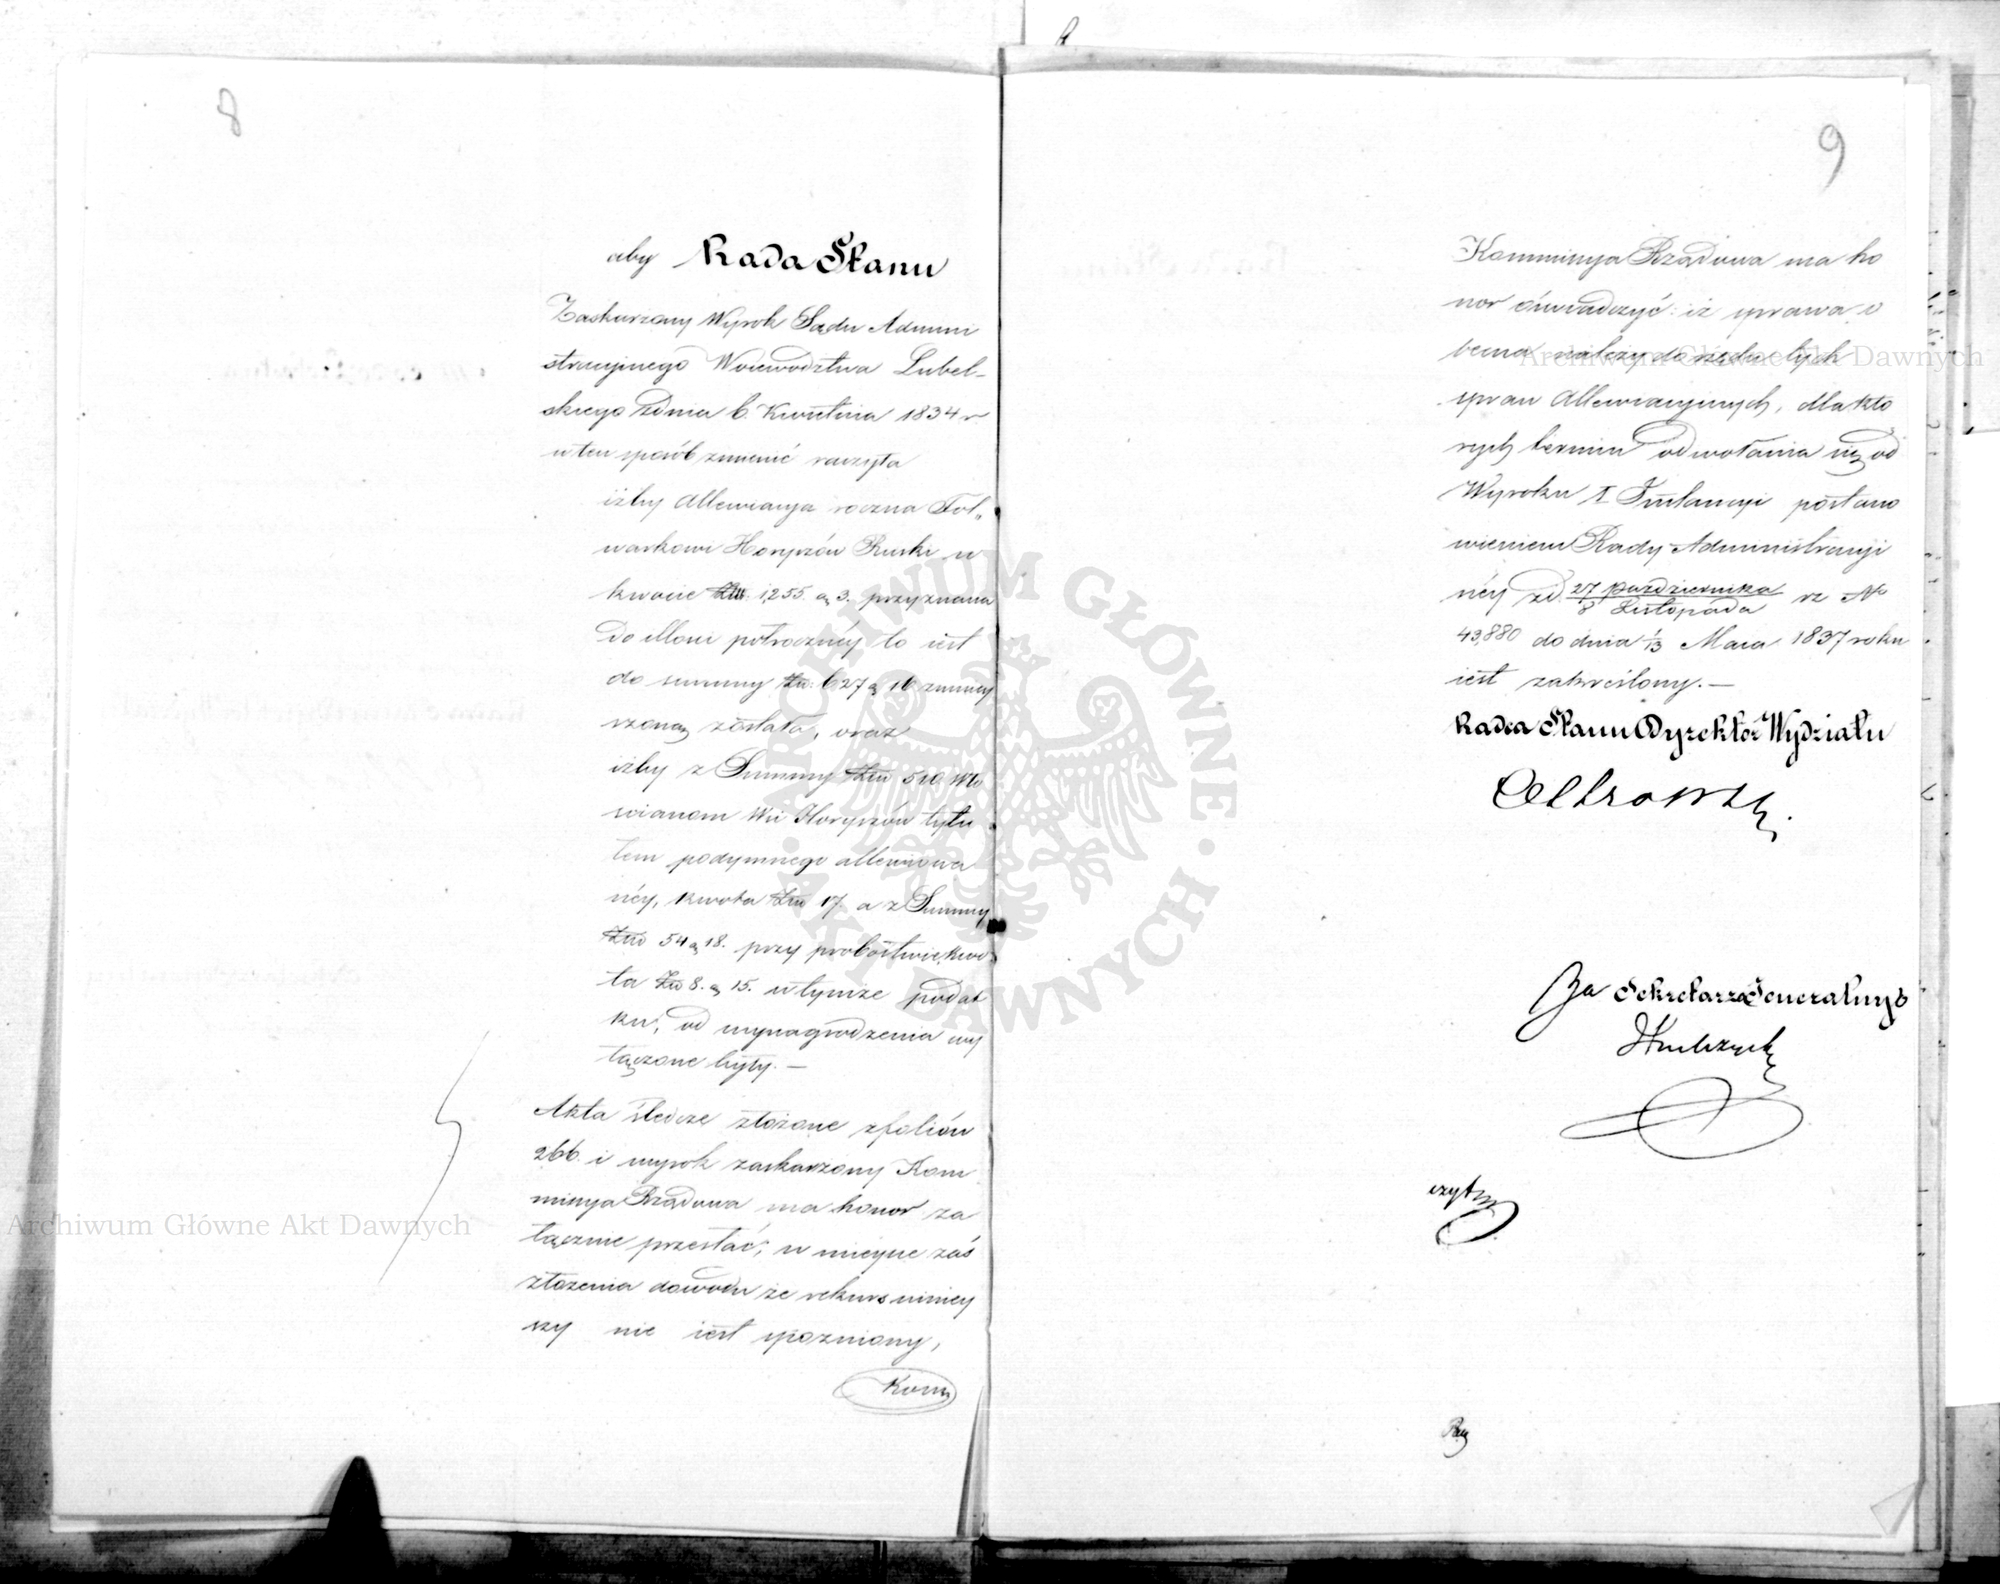 8
aby Rada Stanu
Zaskarzony Wyrok Sądu Admini
stracyjnego Woiewodztwa Lubel-
skiego z dnia 6. Kwietnia 1834 r
w ten sposób zmienić raczyła
iżby Allewiacya roczna Fol„
warkowi Horyszów Ruski w
kwocie Złł. 1,255. g 3. przyznana
do illoui połroczney to iest
do summy Złł. 627 g 16 zmniey
szoną została, oraz
iżby z Summy Złł 510. Wło
ścianom Wsi Horyszów tytu
łem podymnego allewiowa
néy, kwota Złł 17. a z Summy
Złł 54 g 18. przy probostwie, kwo
ta Złł 8. g 15. w tymże podat
ku, od wynagrodzenia wy
łączone były. —
Akta śledcze złożone z foliów
266. i wyrok zaskarzony Kom
missya Rządowa ma honor za
łącznie przesłać; w mieysce zaś
złożenia dowodu że rekurs niniey
szy nie iest spozniony,
Kom
9
Kommissya Rządowa ma ho
nor oświadczyć: iż sprawa o
becna należy do rzędu tych
spraw Allewiacyjnych, dla któ
rych termin odwołania się od
Wyroku I Instancyi postano
wieniem Rady Administracyi
néy z d. 27 Października / 8 Listopada rz No
43,880 do dnia 1/13 Maia 1837 roku
iest zakreślony. —
Radca Stanu Dyrektor Wydziału
Za Sekretarza Generalnego
czytał
Archiwum Główne Akt Dawnych
Archiwum Główne Akt Dawnych
ARCHIWUM GŁÓWNE · AKT DAWNYCH ·